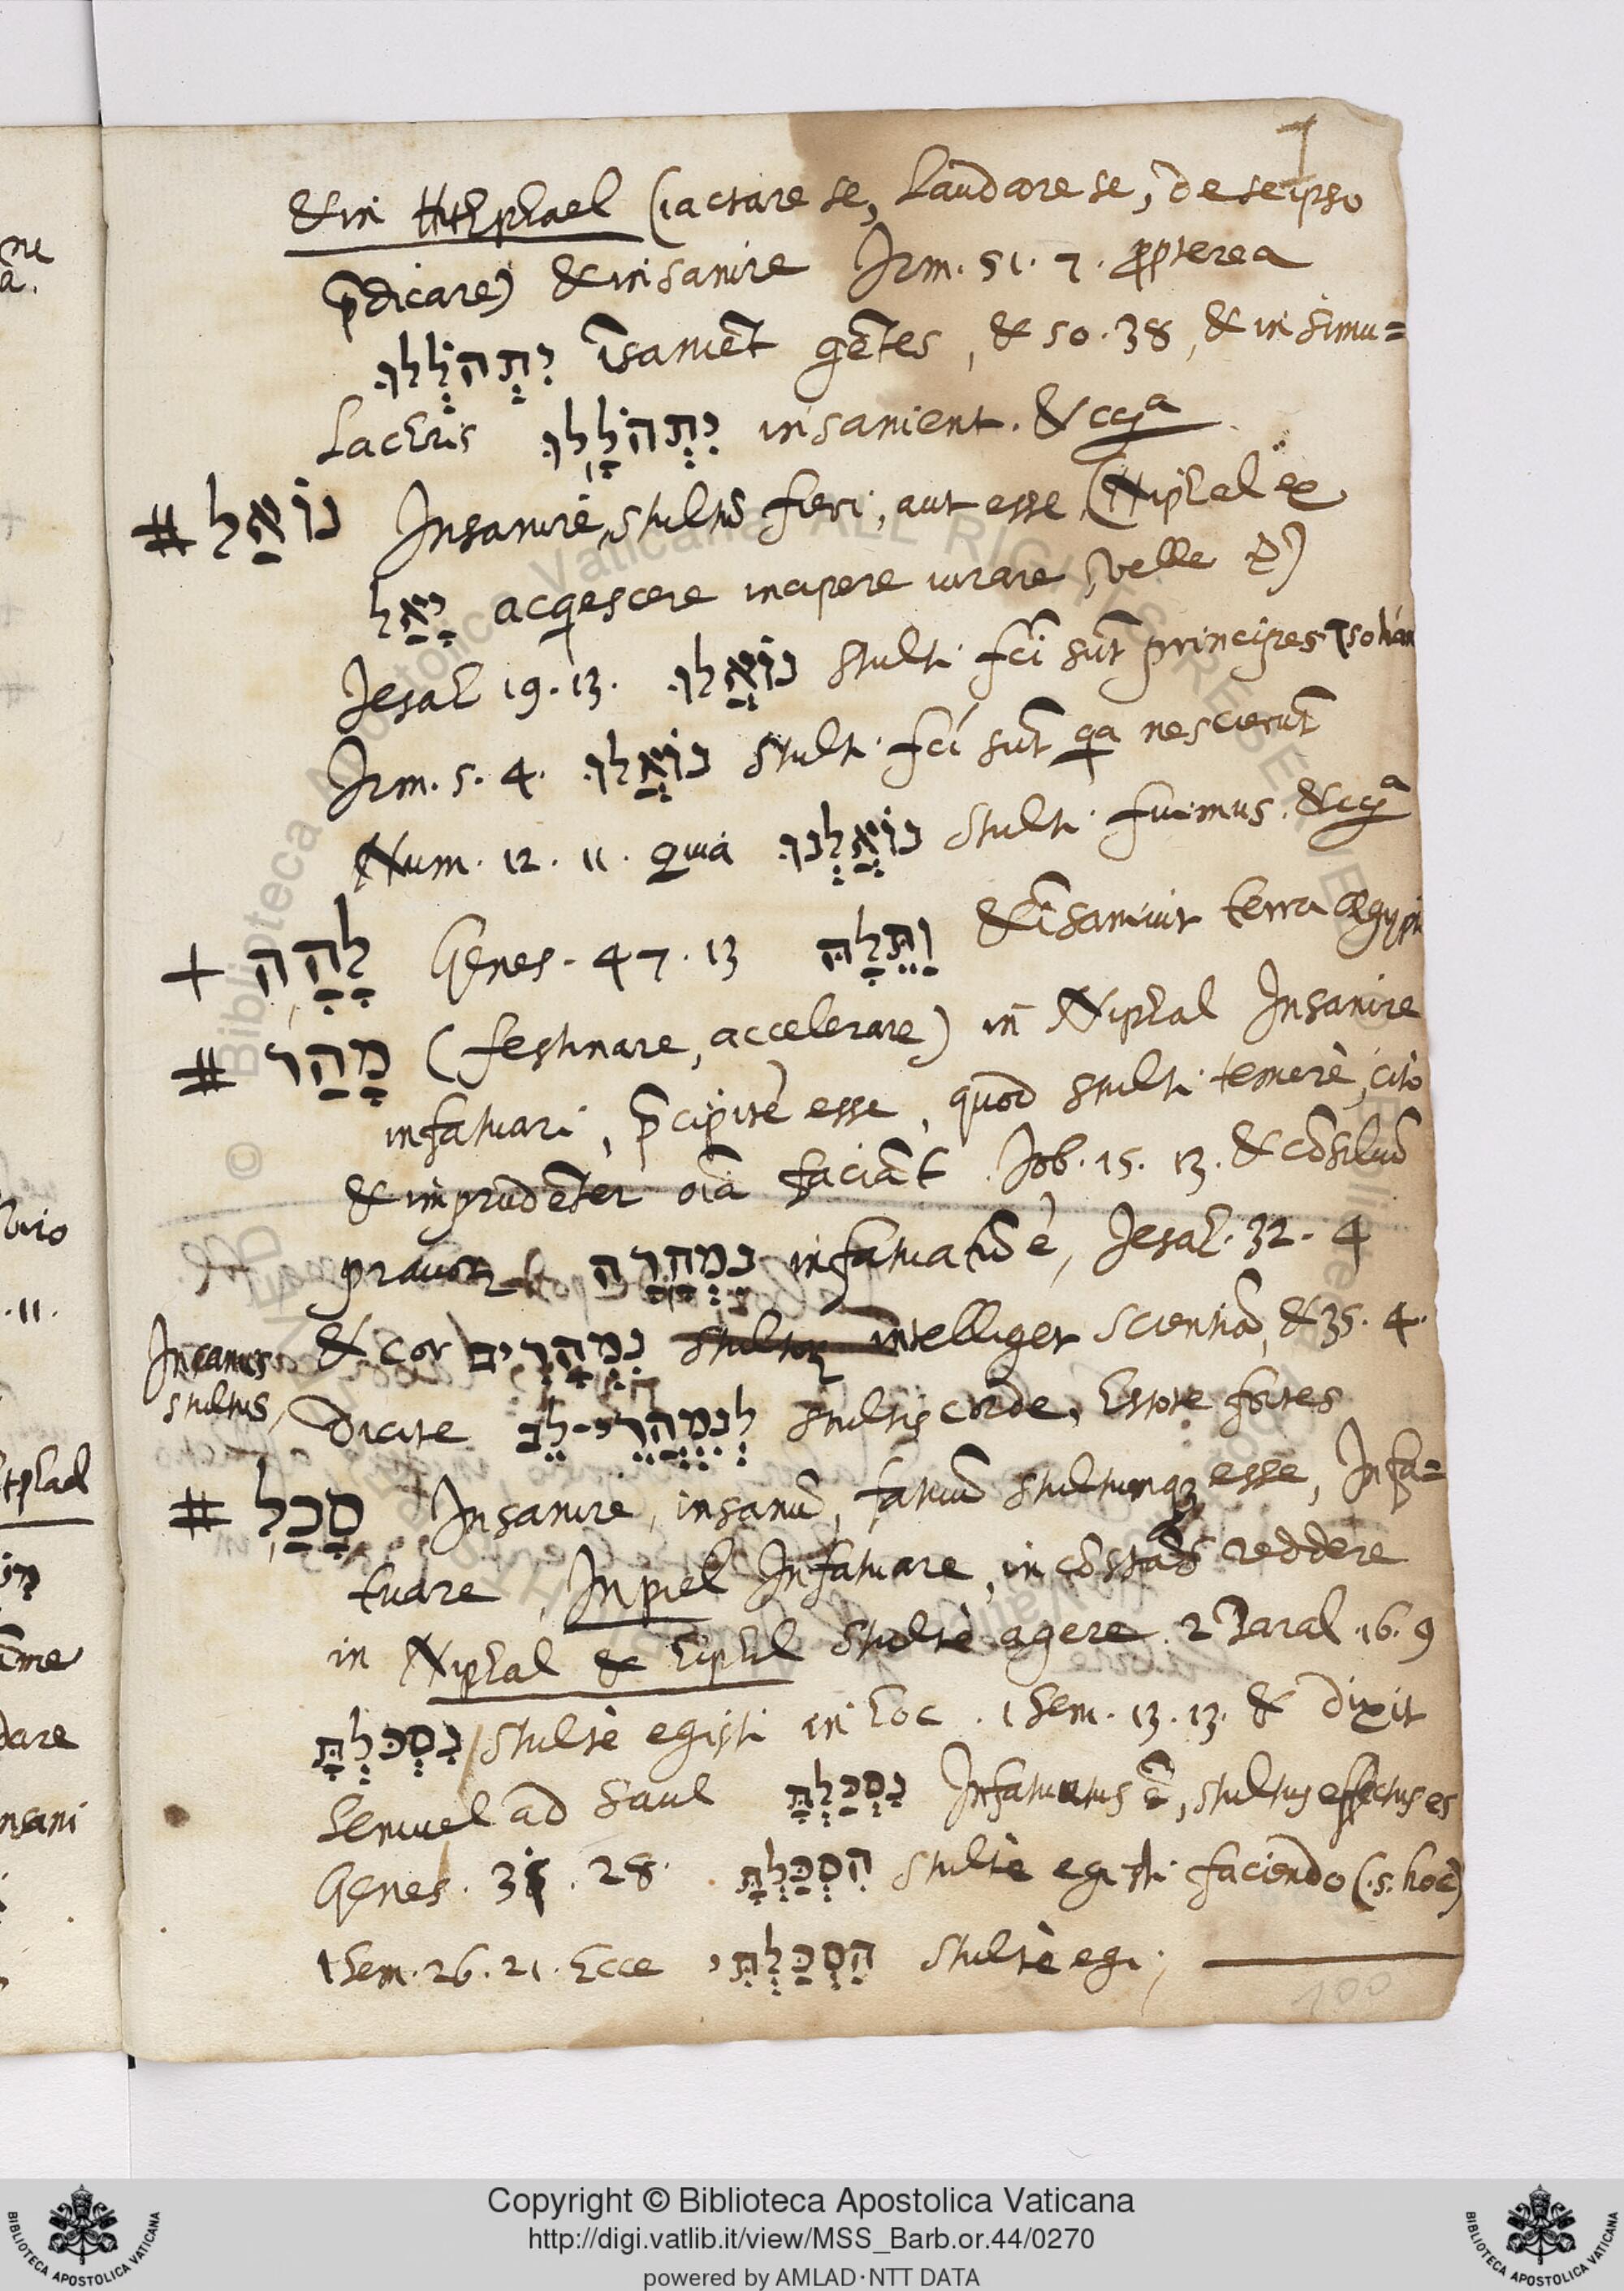 & in Hithphael (iactare se, Laudare se, de seipso
p̄dicare) & insanire Irm. 51. 7. propterea
יִתְהֹלְלוּ īsaniēt gētes, & 50. 38, & in simu=
lachris יִתְהֹלָלוּ insanient. &cꝗᵃ
# נוֹאַל Insanire, stultū fieri, aut esse (Niphal ex
יָאַל acqescere incipere iurare, velle
Jesah 19. 13. נוֹאֲלוּ stulti fci sūt principes Tsohán
Irm. 5. 4. נוֹאֲלוּ stulti fci sūt qa nescierūt
Num. 12. 11. quia נוֹאַלְנוּ stulti fuimus. &cꝗᵃ
+ לָהָה Genes. 47. 13 וַתֵּלַהּ & īsaniuit terra Ægypti
# מָהַר (festinare, accelerare) in Niphal Insanire
infatuari, p̄cipitē esse, quod stulti temerè, citò
& imprudēter oīa faciāt. Job. 15. 13. & cōsiliū
prauoꝝ נִמְהָרָה infatuatū ē, Jesah. 32. 4
Insanus & cor נִמְהָרִים intelliget scientiā, & 35. 4.
stultus, Dicite לְנִמְהֲרֵי-לֵב stultis corde, Estote fortes
# סָכַל Insanire, insanū, fatuū stultumqꝫ esse, Infa=
tuare, In piel Infatuare, in cōstās reddere
in Niphal & hiphil stultè agere. 2 Paral. 16. 9
נִסְכַּלְתָּ stultè egisti in hoc. 1 Sem. 13. 13. & dixit
Semuel ad Saul נִסְכַּלְתָּ Infatuatus ē, stultus effectus es
Genes. 31. 28. הִסְכַּלְתָּ stultè egisti faciendo (.s. hoc)
1 Sem. 26. 21. Ecce הִסְכַּלְתִּי stultè egi;
100
Copyright © Biblioteca Apostolica Vaticana
http://digi.vatlib.it/view/MSS_Barb.or.44/0270
powered by AMLAD·NTT DATA